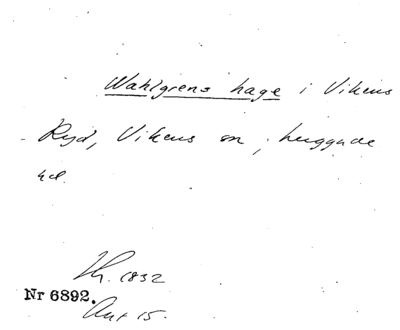 Wahlgrens hage i Vikens
Ryd, Vikens sn, huggade
Th. 1832
Nr 6892.
Aut 15.